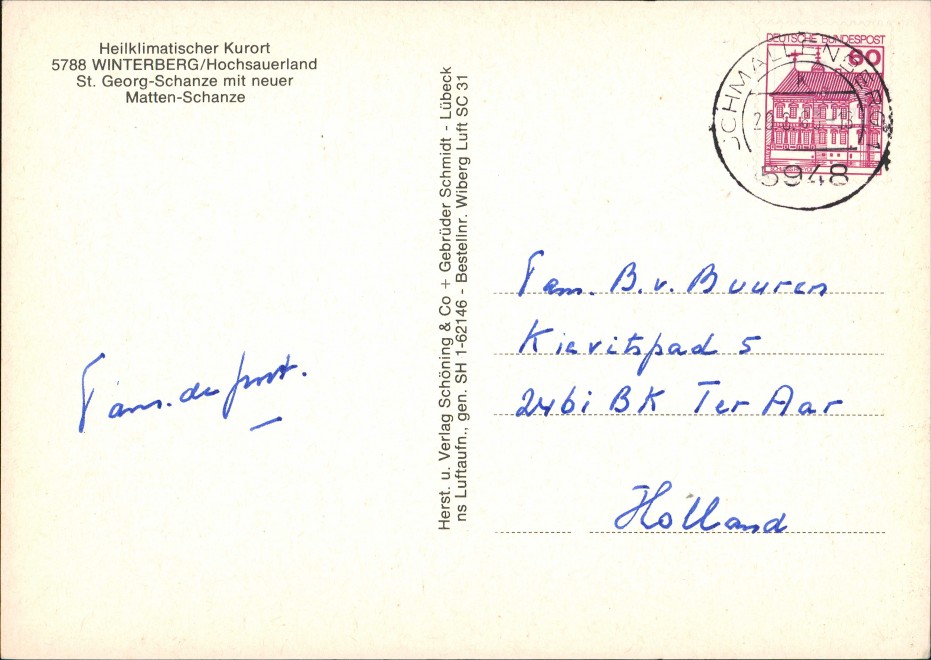 Heilklimatischer Kurort
5788 WINTERBERG/Hochsauerland
St. Georg-Schanze mit neuer
Matten-Schanze
Fam. de
Herst. u. Verlag Schöning & Co + Gebrüder Schmidt - Lübeck
ns Luftaufn., gen. SH 1-62146 - Bestellnr. Wiberg Luft SC 31
DEUTSCHE BUNDESPOST
60
SCHMALLENBERG 1
5948
Fam. B. v. Buuren
Kievitspad 5
2461 BK Ter Aar
Holland